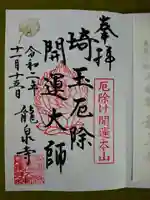 奉拝
厄除け開運本山
埼玉厄除
開運大師
令和二年
十一月十五日
龍泉寺